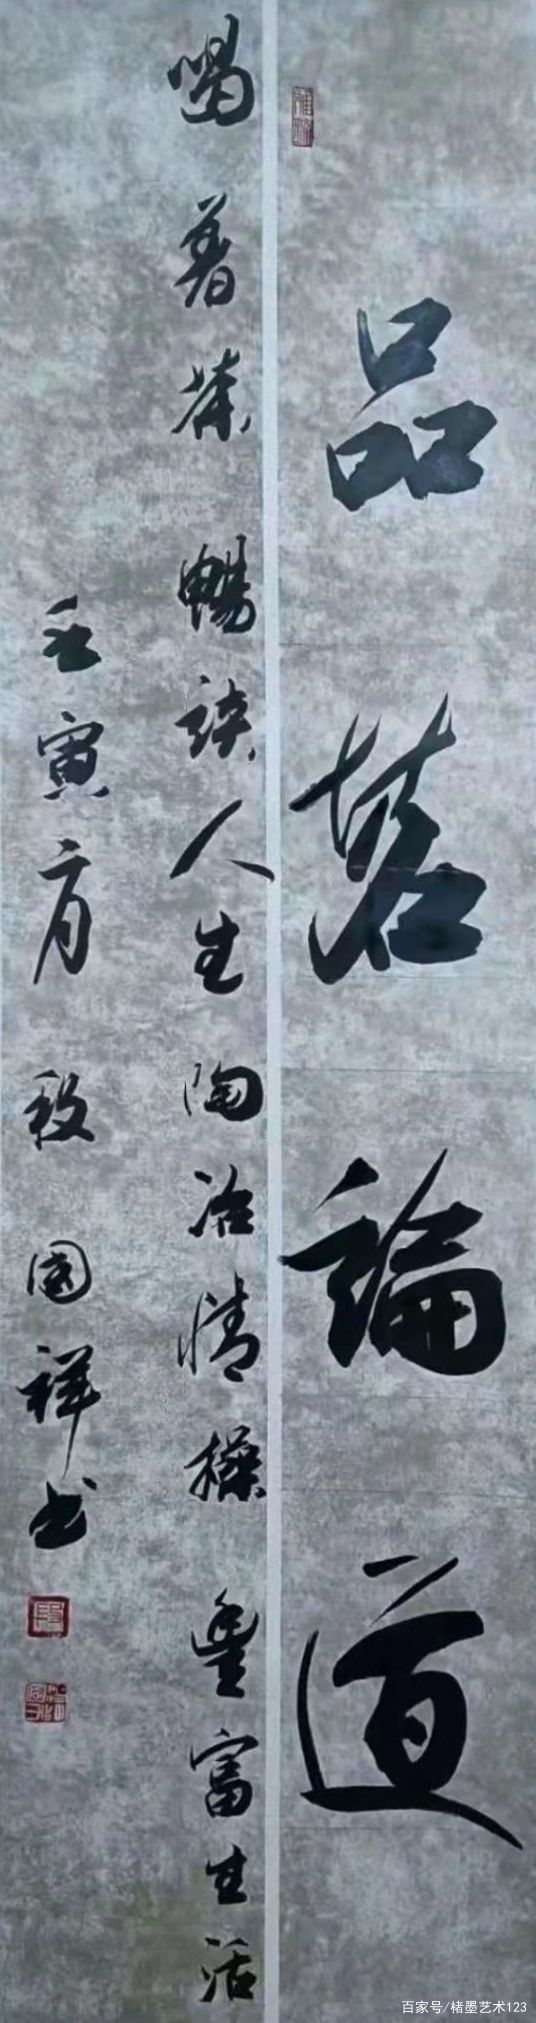 品茗論道
喝着茶暢談人生陶冶情操豐富生活
壬寅二月段國祥书
百家号/楮墨艺术123